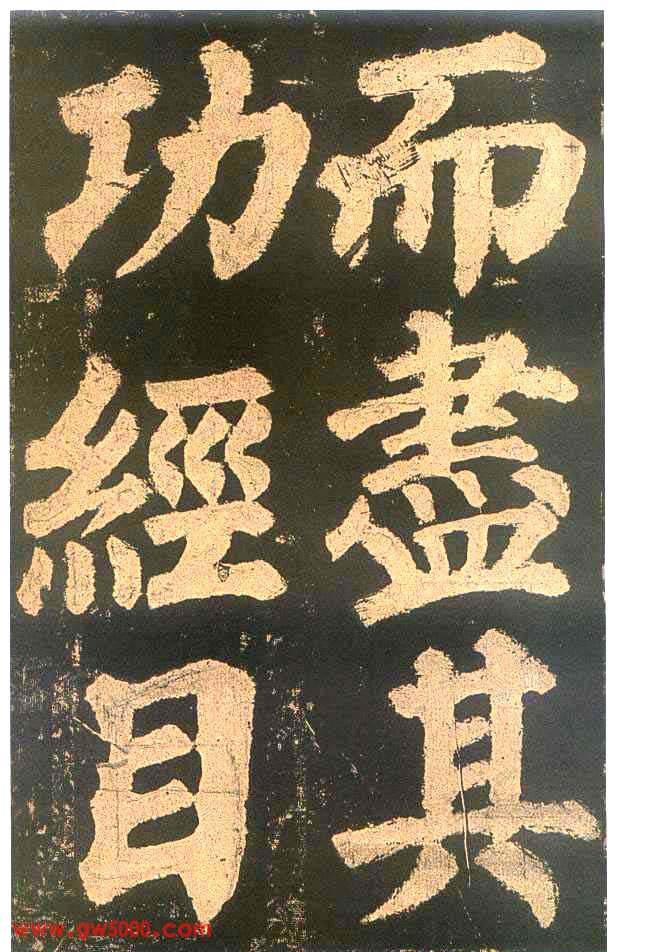 而盡其
功經目
www.gw5000.com